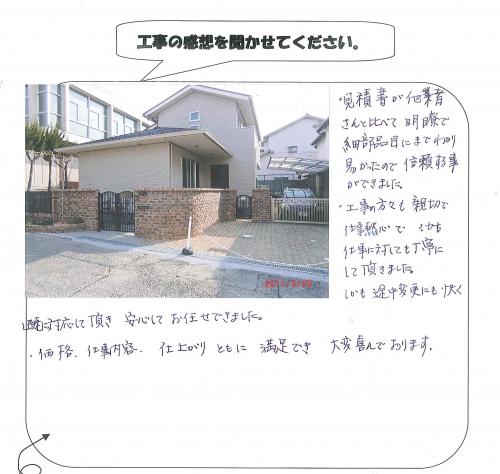 工事の感想を聞かせてください。
・見積書が他業者
さんと比べて明瞭で
細部品目にまでわかり
易かったので信頼する事
ができました
・工事の方々も親切で
仕事熱心で
仕事に対しても丁寧に
して頂きました
しかも途中変更にも快く
対応して頂き 安心してお任せできました。
・価格、仕事内容、仕上がりともに 満足でき 大変喜んでおります。